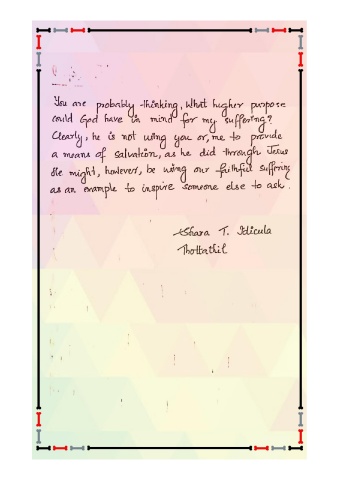 You are probably thinking, What higher purpose
could God have in mind for my suffering?
Clearly, he is not using you or, me to provide
a means of salvation, as he did through Jesus
He might, however, be using our faithful suffering
as an example to inspire someone else to ask.
Shara T. Idicula
Thottathil